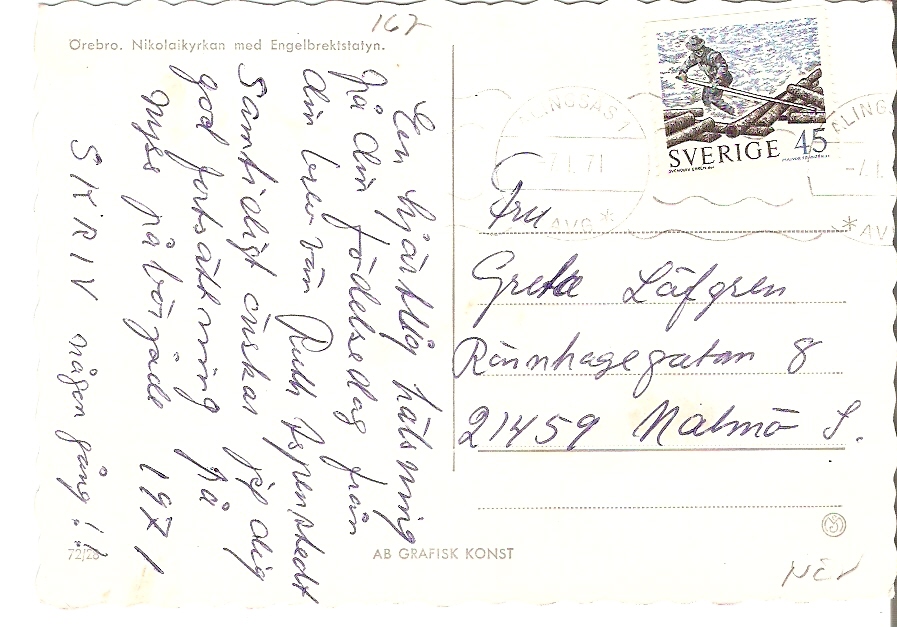 167
Örebro. Nikolaikyrkan med Engelbrektstatyn.
En hjärtlig hälsning
på din födelsedag från
din brevvän Ruth Espenstedt
Samtidigt önskar jag dig
god fortsättning på
nyss påbörjade 1971
SKRIV någon gång!!
SVERIGE 45
ALINGSÅS 1
7.1.71
AVG *
ALING
-7.1.
* AV
Fru
Greta Löfgren
Rönnhagegatan 8
21459 Malmö S.
72/28
AB GRAFISK KONST